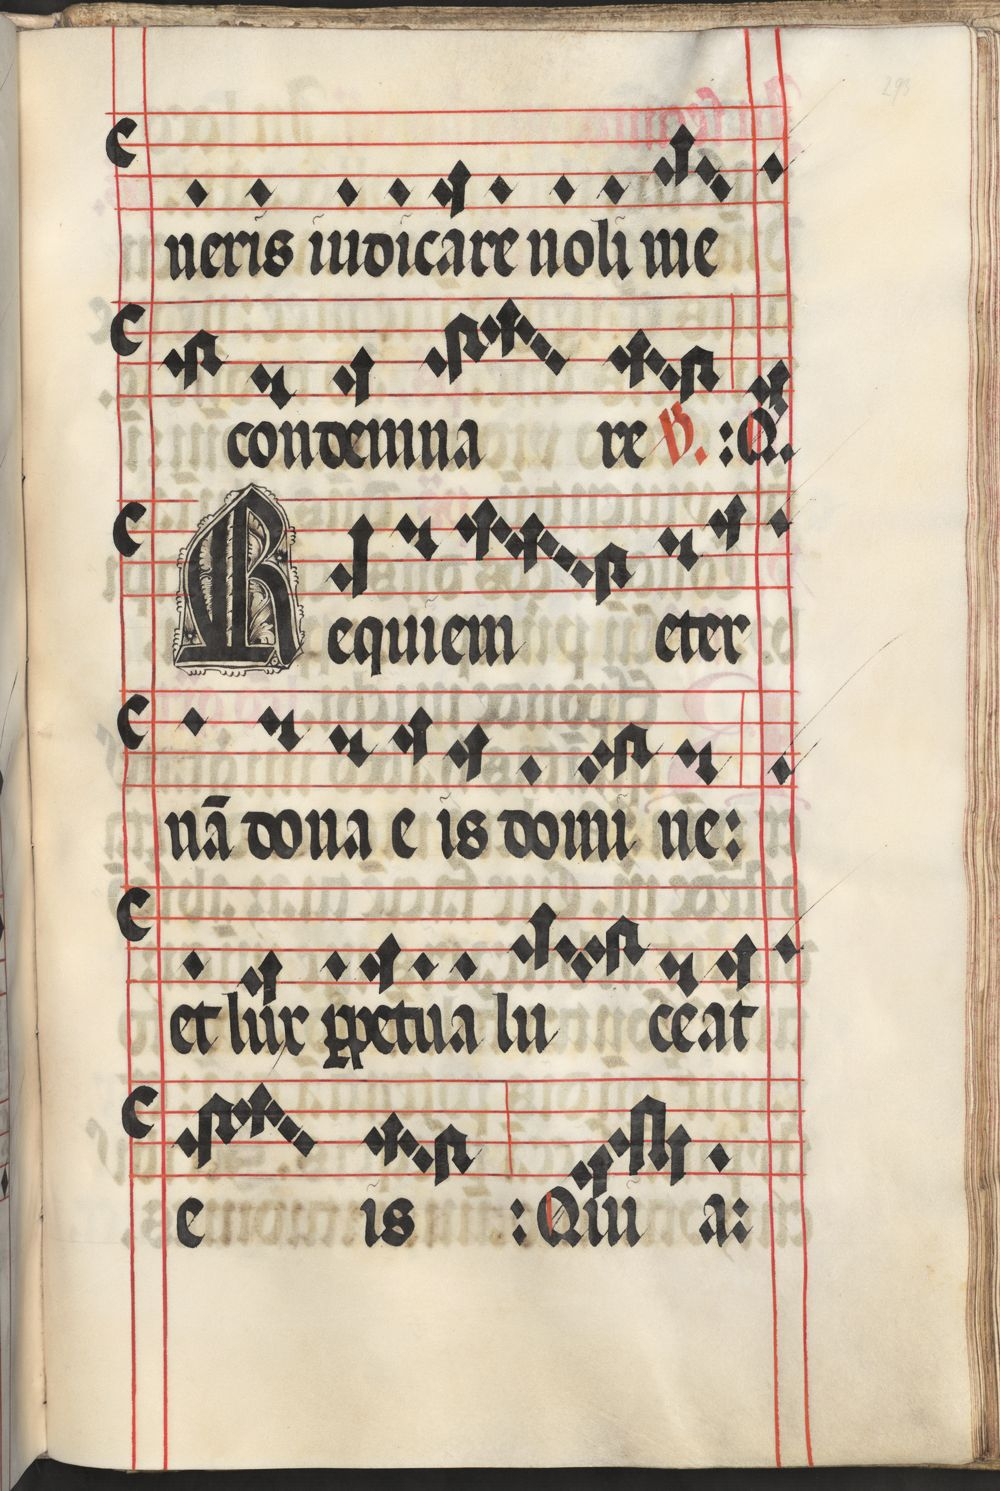 neris iudicare noli me
condemna re V. : Q.
Requiem eter
nā dona e is domi ne:
et lux ꝑpetua lu ceat
e is : Qui a: